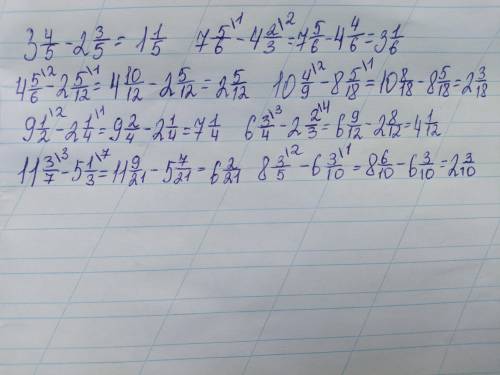 3 4/5 - 2 3/5 = 1 1/5   7 5/6\1 - 4 2/3\2 = 7 5/6 - 4 4/6 = 3 1/6
4 5/6\2 - 2 5/12\1 = 4 10/12 - 2 5/12 = 2 5/12   10 4/9\2 - 8 5/18\1 = 10 8/18 - 8 5/18 = 2 3/18
9 1/2\2 - 2 1/4\1 = 9 2/4 - 2 1/4 = 7 1/4   6 3/4\3 - 2 2/3\4 = 6 9/12 - 2 8/12 = 4 1/12
11 3/7\3 - 5 1/3\7 = 11 9/21 - 5 7/21 = 6 2/21   8 3/5\2 - 6 3/10\1 = 8 6/10 - 6 3/10 = 2 3/10